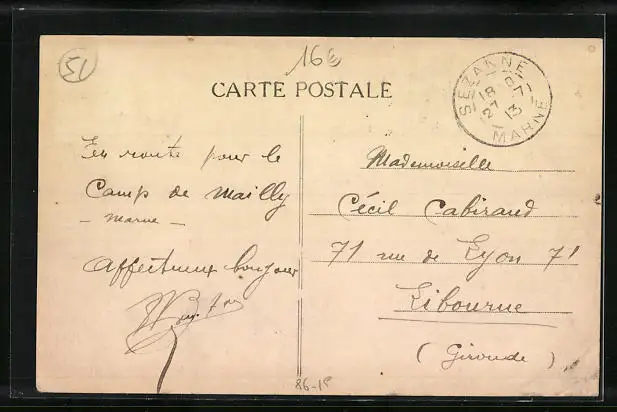 51
16€
CARTE POSTALE
SÉZANNE
18 27-7 13
MARNE
En route pour le
Camp de Mailly
- Marne -
Affectueux bonjour
Mademoiselle
Cécil Cabiraud
71 rue de Lyon 71
Libourne
(Gironde)